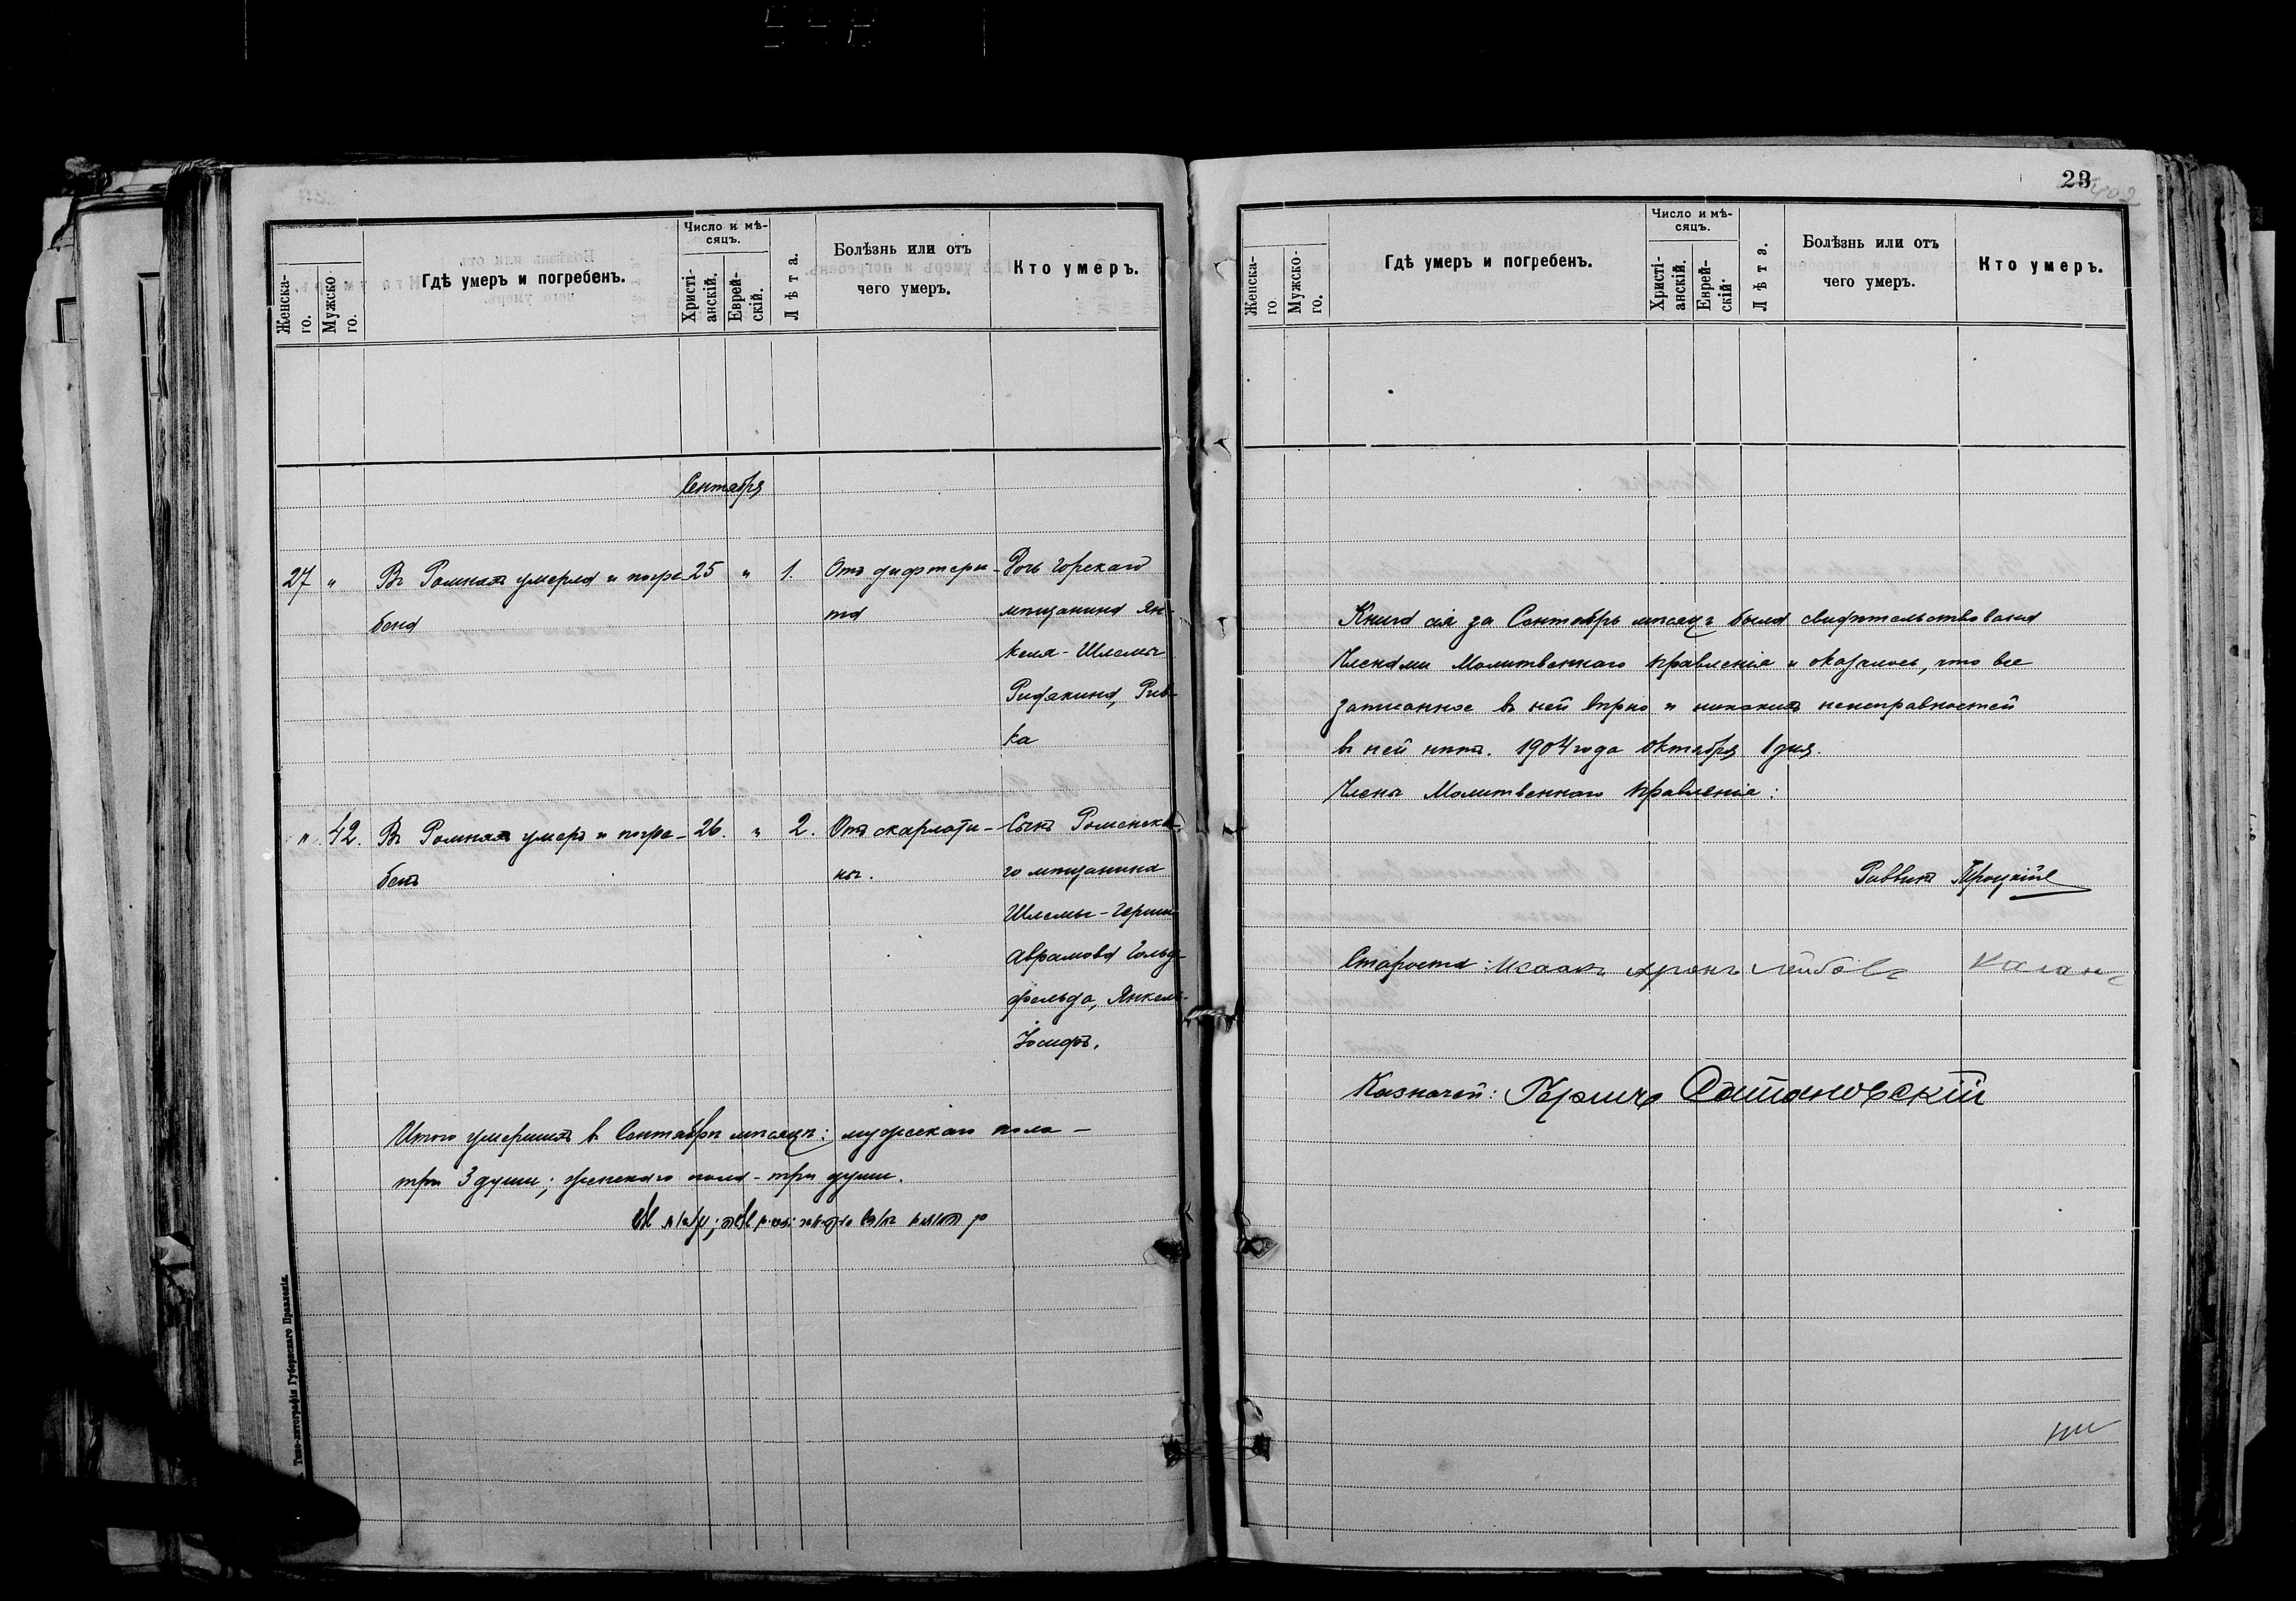 Женска-
го.
Мужско-
го.
Гдѣ умеръ и погребенъ.
Число и мѣ-
сяцъ.
Христі-
анскій.
Еврей-
скій.
Лѣта.
Болѣзнь или отъ
чего умеръ.
Кто умеръ.
Сентября
27 " Въ Ромнахъ умерла и погре- 25 " 1. Отъ дифтери- Дочь Горскаго
бена та мѣщанина Ян-
келя-Шлемы
Рив-
ка
" 42. Въ Ромнахъ умеръ и погре- 26. " 2. Отъ скарлати- Сынъ Роменска-
бенъ ны. го мѣщанина
Шлемы-Герша
Аврамова Гольд-
фельда, Янкель-
Іосифъ.
Итого умершихъ въ Сентябрѣ мѣсяцѣ: мужескаго пола -
три 3 души; женскаго пола - три души.
Типо-литографія Губернскаго Правленія.
23
402
Женска-
го
Мужско-
го.
Гдѣ умеръ и погребенъ.
Число и мѣ-
сяцъ.
Христі-
анскій.
Еврей-
скій.
Лѣта.
Болѣзнь или отъ
чего умеръ.
Кто умеръ.
Книга сія за Сентябрь мѣсяцъ была свидѣтельствована
Членами Молитвеннаго Правленія и оказалось, что все
записанное въ ней вѣрно и никакихъ неисправностей
въ ней нѣтъ. 1904 года Октября 1 дня.
Члены Молитвеннаго Правленія:
Раввинъ
Староста: Исаакъ Аронъ Лейбовъ Каган
Казначей: Сатановскій